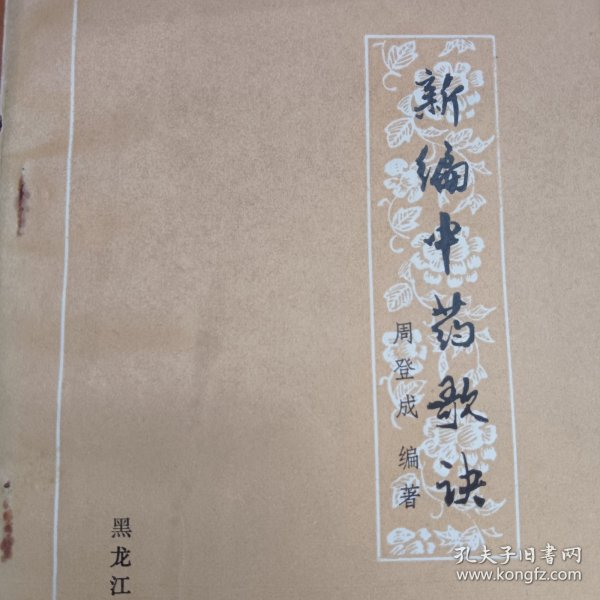 新编中药歌诀
周登成 编著
黑龙江
孔夫子旧书网
www.kongfz.com